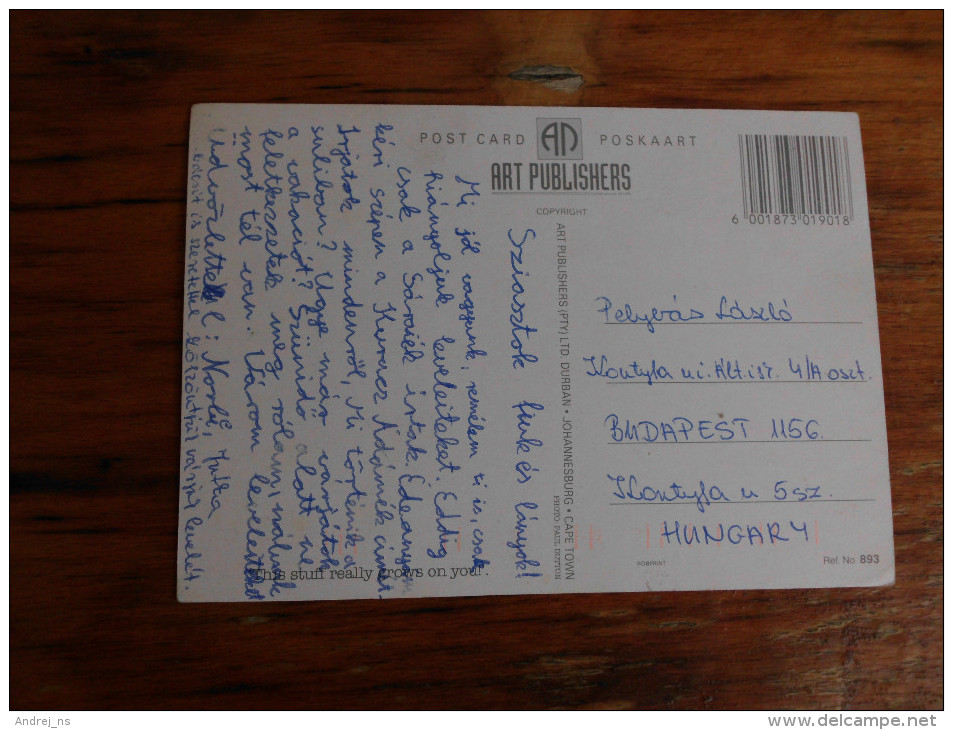 POST CARD
POSKAART
ART PUBLISHERS
COPYRIGHT
ART PUBLISHERS (PTY) LTD. DURBAN • JOHANNESBURG • CAPE TOWN
PHOTO PAUL DUTTON
6 001873 019018
Sziasztok fiuk és lányok!
Mi jól vagyunk, remélem ti is, csak
hiányoljuk leveleiteket. Eddig
csak a Sáraiék írtak. Édesanyám
kéri szépen a Kuvacz Ádámék címét.
Irjatok mindenről, Mi történik a
suliban? Ugye már várjátok
a vakációt? Szünidő alatt ne
feletkezzetek meg rólam, nálunk
most tél van. Várom leveleiteket
Üdvözlettel: Norbi, Jutka
is szeretettel várja levelét.
This stuff really grows on you!
Pelyvás László
Kontyfa u. Ált. isk. 4/A oszt.
BUDAPEST 1156.
Kontyfa u 5 sz.
HUNGARY
ROBPRINT
Ref. No. 893
Andrej_ns
www.delcampe.net